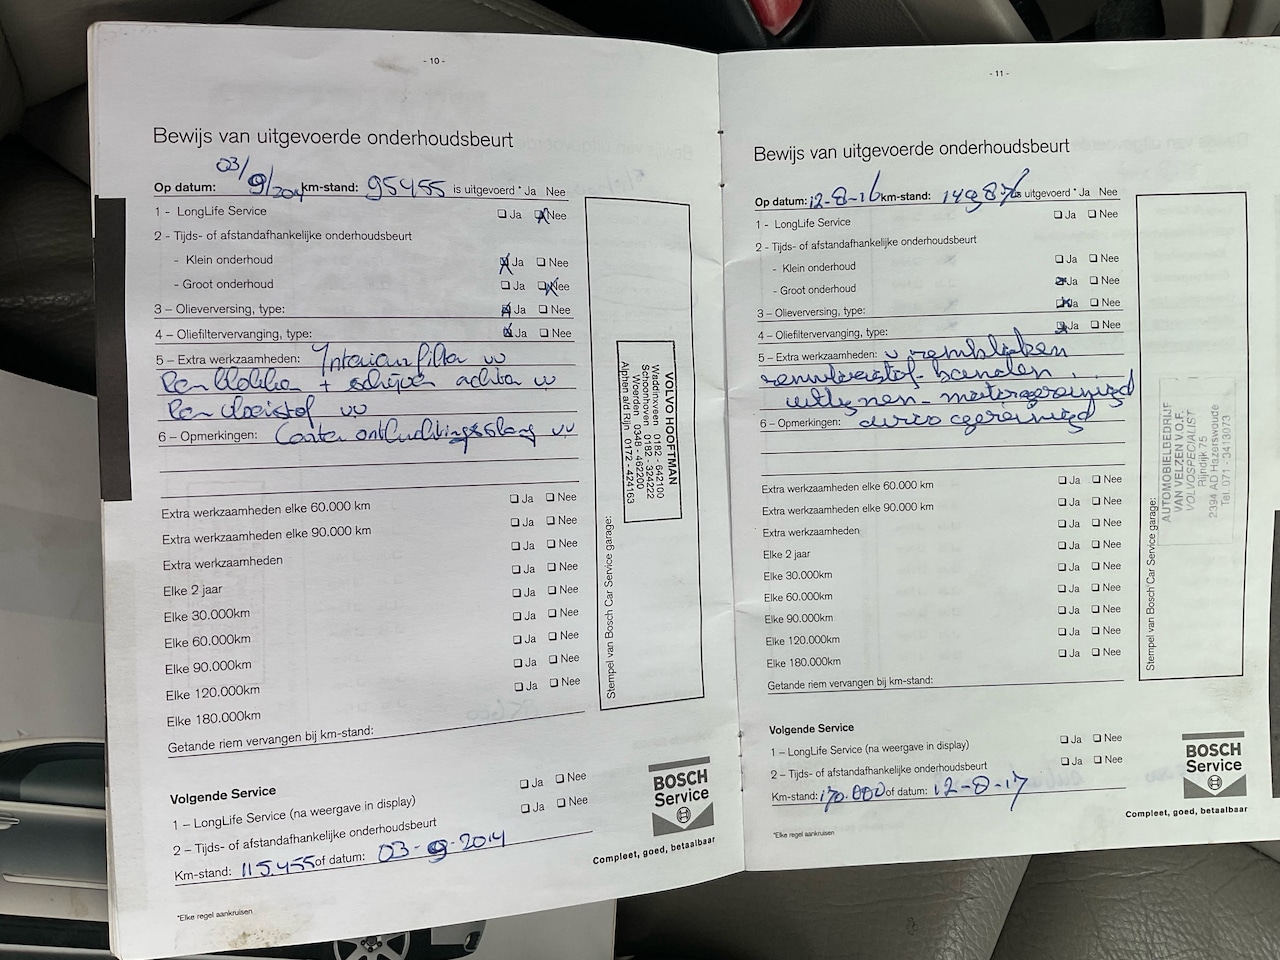 - 10 -
Bewijs van uitgevoerde onderhoudsbeurt
Op datum: 03/9/201 km-stand: 95455 is uitgevoerd * Ja Nee
1 - LongLife Service Ja Nee
2 - Tijds- of afstandafhankelijke onderhoudsbeurt
- Klein onderhoud Ja Nee
- Groot onderhoud Ja Nee
3 – Olieverversing, type: Ja Nee
4 – Oliefiltervervanging, type: Ja Nee
5 – Extra werkzaamheden: Interieurfilter vv
Remblokken + schijven achter vv
Remvloeistof vv
6 – Opmerkingen: Carterontluchtingsslang vv
Extra werkzaamheden elke 60.000 km Ja Nee
Extra werkzaamheden elke 90.000 km Ja Nee
Extra werkzaamheden Ja Nee
Elke 2 jaar Ja Nee
Elke 30.000km Ja Nee
Elke 60.000km Ja Nee
Elke 90.000km Ja Nee
Elke 120.000km Ja Nee
Elke 180.000km Ja Nee
Getande riem vervangen bij km-stand:
Volgende Service
1 – LongLife Service (na weergave in display) Ja Nee
2 – Tijds- of afstandafhankelijke onderhoudsbeurt Ja Nee
Km-stand: 115455 of datum: 03-9-2014
*Elke regel aankruisen
Stempel van Bosch Car Service garage:
VOLVO HOOFTMAN
Waddinxveen 0182 - 642100
Schoonhoven 0182 - 324222
Woerden 0348 - 462200
Alphen a/d Rijn 0172 - 424163
BOSCH
Service
Compleet, goed, betaalbaar
- 11 -
Bewijs van uitgevoerde onderhoudsbeurt
Op datum: 12-8-16 km-stand: 149.876 is uitgevoerd * Ja Nee
1 - LongLife Service Ja Nee
2 - Tijds- of afstandafhankelijke onderhoudsbeurt
- Klein onderhoud Ja Nee
- Groot onderhoud Ja Nee
3 – Olieverversing, type: Ja Nee
4 – Oliefiltervervanging, type: Ja Nee
5 – Extra werkzaamheden: v remblokken
remvloeistof - banden
uitlijnen - motorgereinigd
6 – Opmerkingen: airco gereinigd
Extra werkzaamheden elke 60.000 km Ja Nee
Extra werkzaamheden elke 90.000 km Ja Nee
Extra werkzaamheden Ja Nee
Elke 2 jaar Ja Nee
Elke 30.000km Ja Nee
Elke 60.000km Ja Nee
Elke 90.000km Ja Nee
Elke 120.000km Ja Nee
Elke 180.000km Ja Nee
Getande riem vervangen bij km-stand:
Volgende Service
1 – LongLife Service (na weergave in display) Ja Nee
2 – Tijds- of afstandafhankelijke onderhoudsbeurt Ja Nee
Km-stand: 170.000 of datum: 12-8-17
*Elke regel aankruisen
Stempel van Bosch Car Service garage:
AUTOMOBIELBEDRIJF
VAN VELZEN V.O.F.
VOLVOSPECIALIST
Rijndijk 75
2394 AD Hazerswoude
Tel. 071 - 3413073
BOSCH
Service
Compleet, goed, betaalbaar